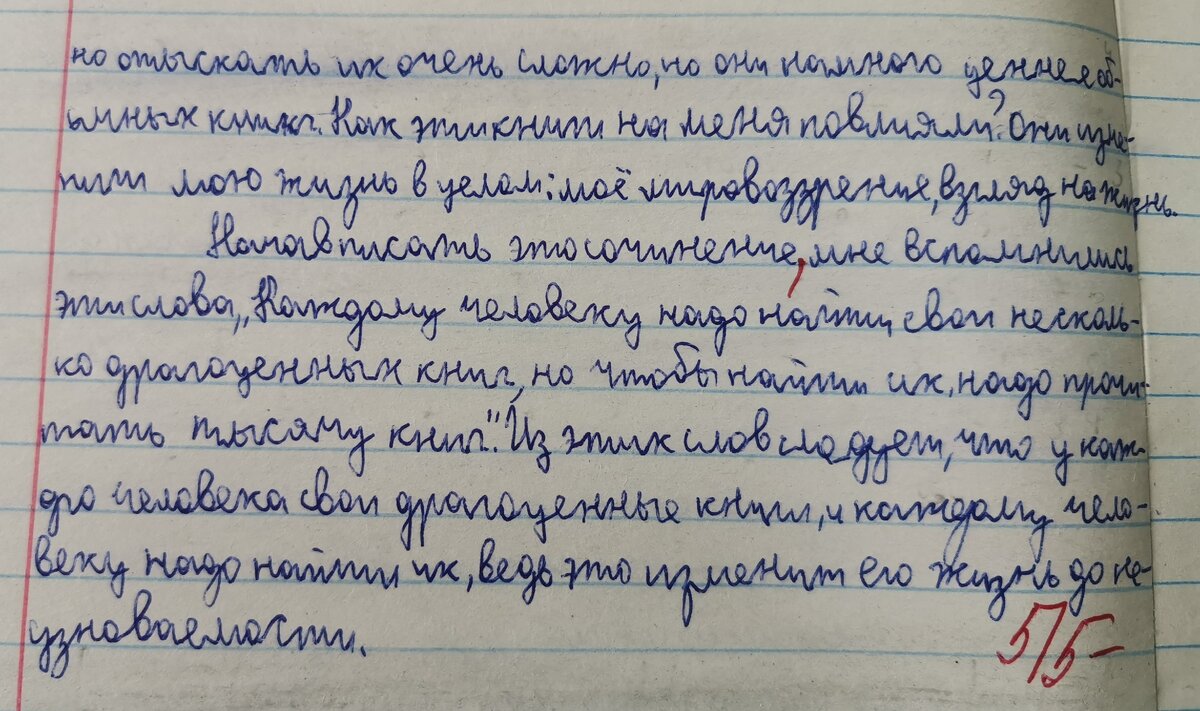 но отыскать их очень сложно, но они намного ценнее об-
ычных книг. Как эти книги на меня повлияли? Они изме-
нили мою жизнь в целом: моё мировоззрение, взгляд на жизнь.
Начав писать это сочинение, мне вспомнились
эти слова „Каждому человеку надо найти свои несколь-
ко драгоценных книг, но чтобы найти их, надо прочи-
тать тысячу книг". Из этих слов следует, что у каж-
дго человека свои драгоценные книги, и каждому чело-
веку надо найти их, ведь это изменит его жизнь до не-
узноваемости.
5/5-